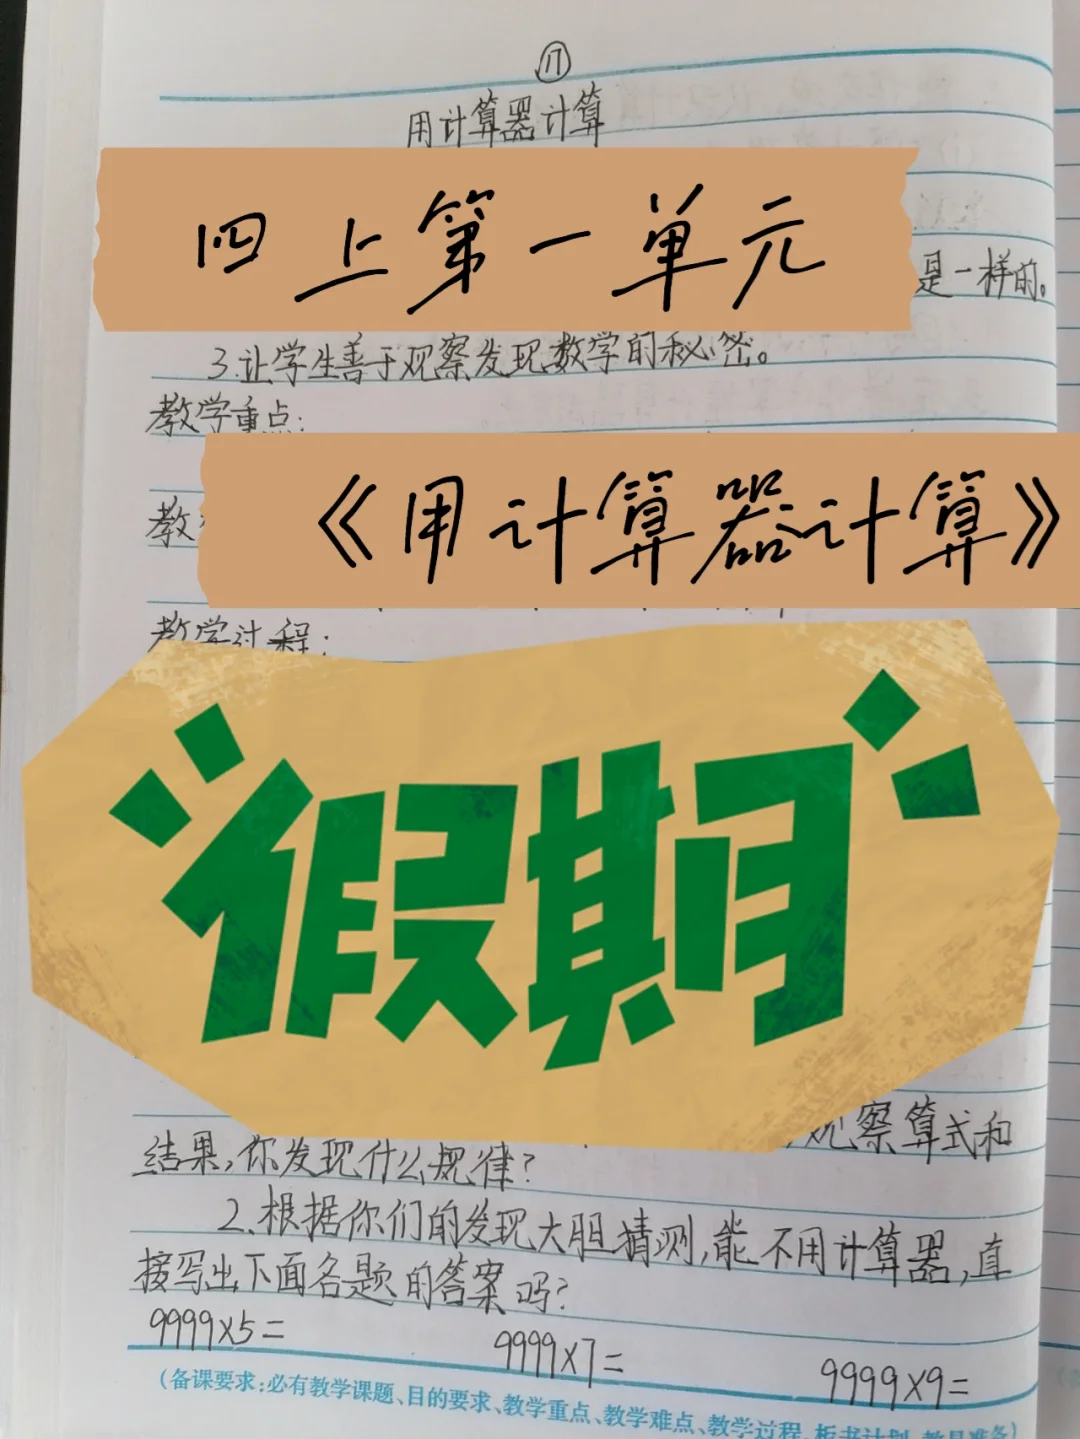 ⑰
用计算器计算
四上第一单元
是一样的。
3.让学生善于观察发现数学的秘密。
教学重点:
《用计算器计算》
教
教学过程:
假期
观察算式和
结果,你发现什么规律?
2.根据你们的发现大胆猜测,能不用计算器,直
接写出下面各题的答案吗?
9999×5= 9999×7= 9999×9=
(备课要求:必有教学课题、目的要求、教学重点、教学难点、教学过程、板书计划、教具准备)